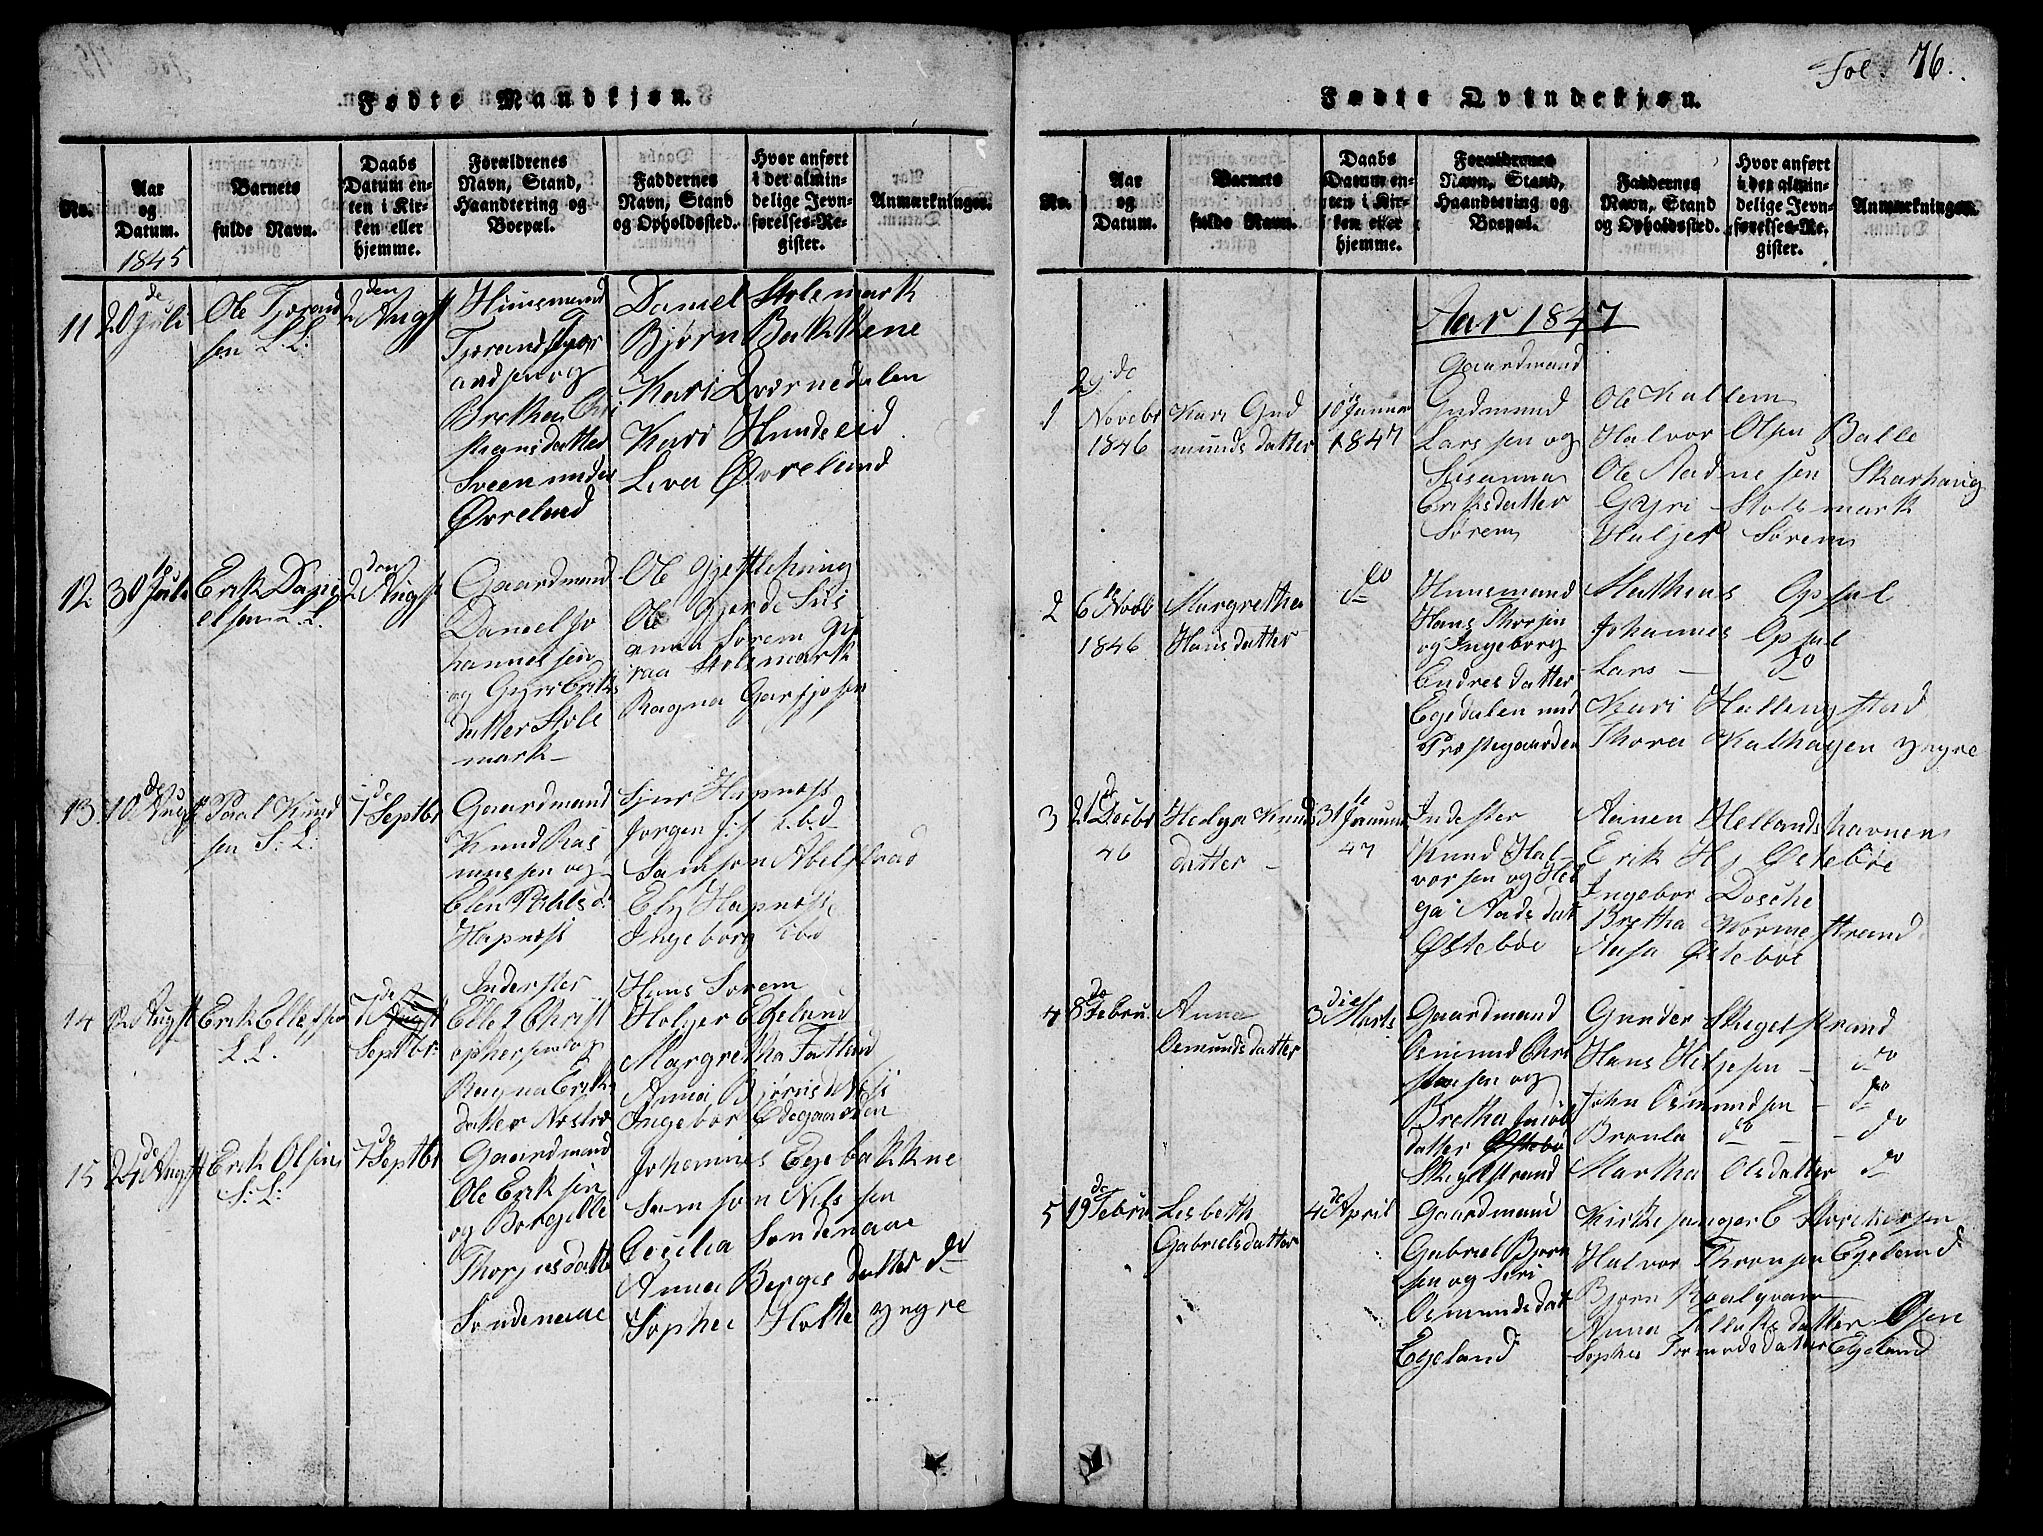 Fødte Mandkjøn.
No.
Aar
og
Datum.
1845
Barnets
fulde Navn.
Daabs
Datum en-
ten i Kir-
ken eller
hjemme.
Forældrenes
Navn, Stand,
Haandtering og
Boepæl.
Faddernes
Navn, Stand
og Opholdssted.
Hvor anført
i der almin-
delige Jevn-
førelses-Re-
gister.
Anmærkninger.
11
20de Juli
Ole Tjerand
sen L. L.
2den Augst
Huusmand
Tjerand Tjer
andsen og
Bretha Chri
stiansdatter
Sveen under
Øvreland
Daniel Stolemark
Bjørn Bakkene
Kari Qværnedalen
Kari Hundseid
Liva Øvreland
12
30 Juli
Erik Dani
elsen L. L.
2den Augst
Gaardmand
Daniel Jo
hannessen
og Gyri Eriks
datter Stole
mark
Ole
Ole Gjerde
Sørem
Stolemark
Ragna
13
10de Augst
Paul Knud
sen S. L.
7de Septbr
Gaardmand
Knud Ras
mussen og
Elen
Hapnæs
Sjur Hapnæs
Jørgen
Samson Abelstvad
Ely Hapnæs
Ingeborg
14
12 Augst
Erik Ellefsen
L. L.
7de Augst
Septbr:
Inderster
Ellef Christ
ophersen og
Ragna Eriks
datter
Hans Sørem
Holger Egeland
Margretha Fatland
Anna Bjørns
Ingebor
15
24de Augst
Erik Olsen
S: L:
7de Septbr
Gaardmand
Ole Eriksen
og Borgille
Thorjusdatt
Søndenaae
Johannes Egebakkne
Samson Nilssen
Cecilia Søndenaae
Anna Bergesdatter do
Sophie Holte yngre
Fol. 76.
Fødte Qvindekjøn.
No.
Aar
og
Datum.
Barnets
fulde Navn.
Daabs
Datum en-
ten i Kir-
ken eller
hjemme.
Forældrenes
Navn, Stand,
Haandtering og
Boepæl.
Faddernes
Navn, Stand
og Opholdssted.
Hvor anført
i der almin-
delige Jevn-
førelses-Re-
gister.
Anmærkninger.
Aar 1847
1
29de
Novebr
1846
Kari Gud
mundsdatter
10de Januar
1847
Gaardmand
Gudmund
Larssen og
Susanna
Eriksdatter
Sørem
Ole Kallem
Halvor Olsen Balle
Ole Aadnesen Skarhaug
Gyri Stolemark
Sørem
2
6te Novbr
1846
Margretha
Hansdatter
do
Huusmand
Hans Thorsen
og Ingeborg
Endresdatter
Egedalen und
Præstegaarden
Mathias Opsal
Johannes Opsal
Lars - do
Kari Hallingstad
Thora Kalhagen yngre
3
21de Decbr
46
Helga Knuds
datter
31te Januar
47
Inderster
Knud Hal-
vorsen og Hel
ga Aadsdat
Østebøe
Hellandshavnen
Erik Østebøe
Ingebor Dosche
Bretha Kormestrand
Aasa Østebøe
4
8de Febru.
Anna
Osmundsdatter
3die Marts
Gaardmand
Osmund Chri
stensen og
Bretha Jacob
datter Østebø
Skigelstrand
Gunder Skigelstrand
Hans Helgesen - do
John Osmundsen - do
Bronla do - - do
Martha Olsdatter do
5
19de Februr
Lisbeth
Gabrielsdatter
4de April
Gaardmand
Gabriel Bjørn
sen og Siri
Osmundsdat
Egeland
Kirkesanger E Storkersen
Halvor Thronsen Egeland
Bjørn Roalqvam
Anna Tollaksdatter Øsen
Sophie Tormodsdatter Egeland